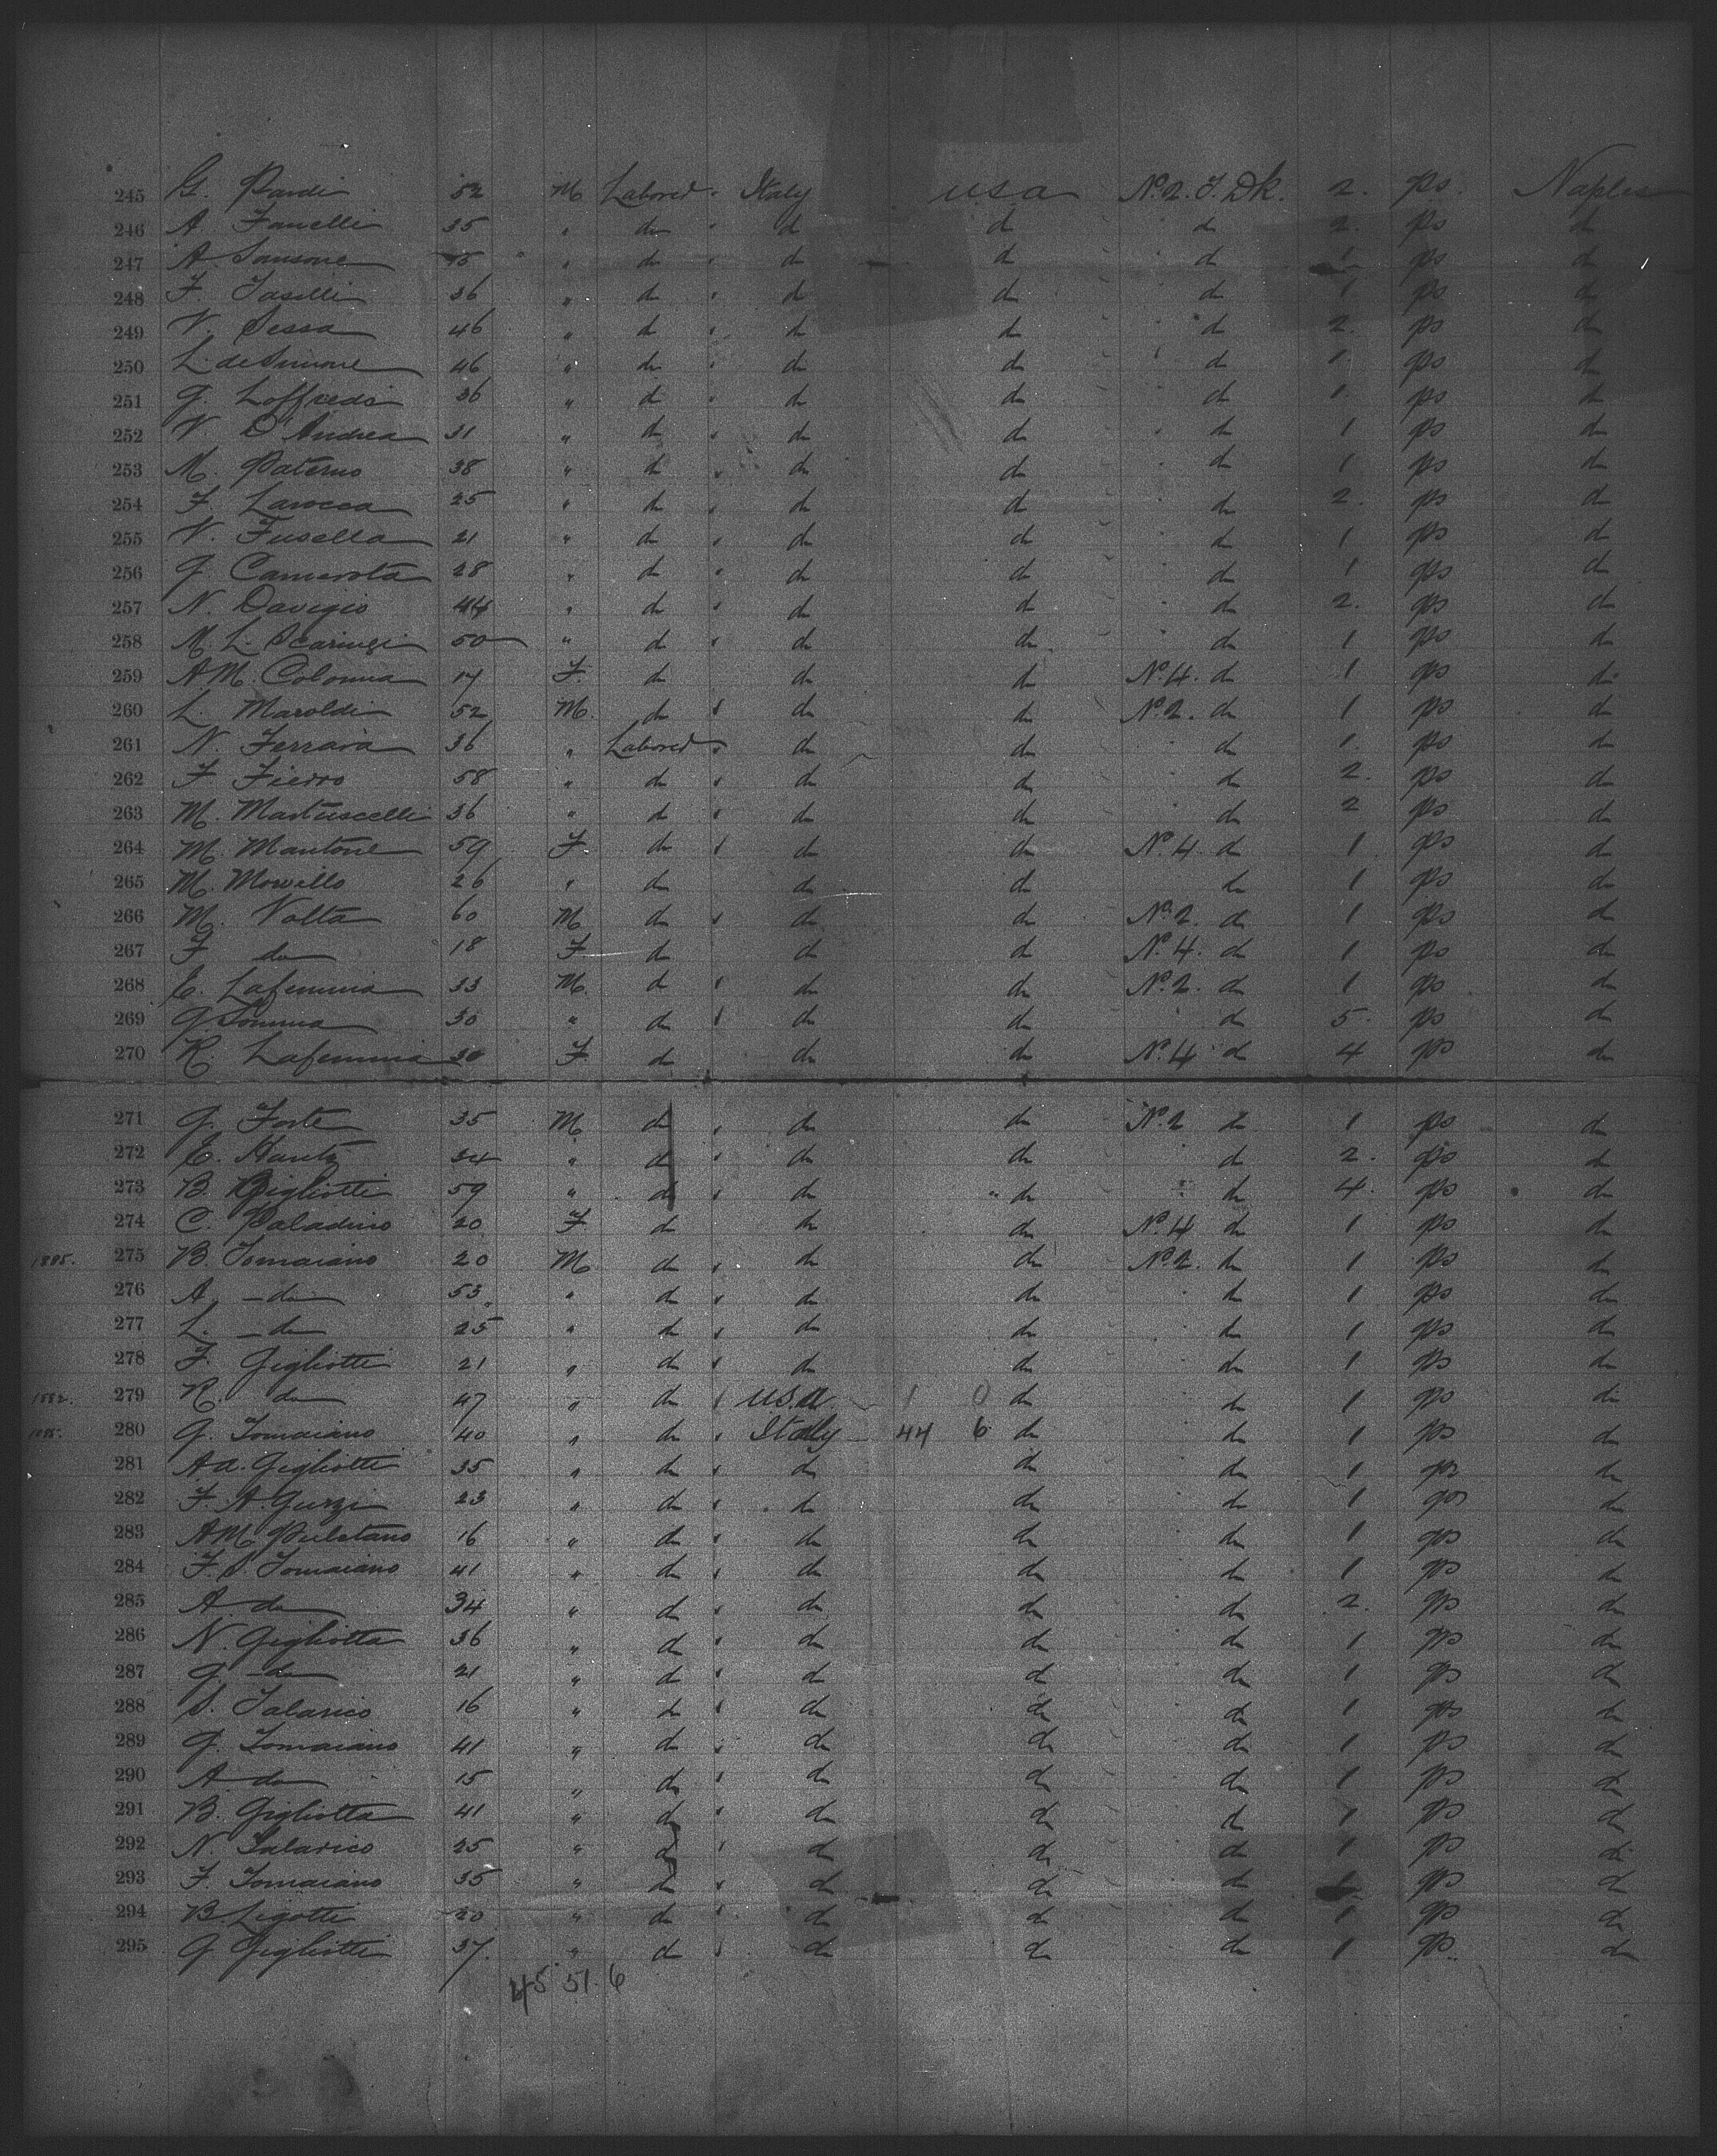 245 G. Pardi 52 M Labored " Italy usa No 2. T. Dk. 2. ps. Naples
246 A. Fanelli 35 " do " do do do 2. ps do
247 A. Sansone " do " do do do 1 ps do
248 F. Taselli 36 " do " do do do 1 ps do
249 V. Sessa 46 " do " do do do 2. ps do
250 L. de Simone 46 " do " do do do 1. ps do
251 G. Loffredo 36 " do " do do do 1. ps do
252 V. D'Andrea 31 " do " do do do 1 ps do
253 M. Paterno 38 " do " do do do 1. ps do
254 F. Larocca 25 " do " do do do 2. ps do
255 V. Fusella 21 " do " do do do 1 ps do
256 G. Camerota 28 " do " do do do 1 ps do
257 N. Davigio 44 " do " do do do 2. ps do
258 M. L. Scaringi 50 " do " do do do 1 ps do
259 A M. Colonna 17 F. do do do No 4. do 1 ps do
260 L. Maroldi 52 M. do " do do No 2. do 1 ps do
261 N. Ferrara 36 " Labored " do do do 1. ps do
262 F. Fierro 58 " do " do do do 2. ps do
263 M. Martuscelli 36 " do " do do do 2 ps do
264 M. Mantone 59 F do " do do No 4. do 1 ps do
265 M. 26 " do do do do 1 ps do
266 M. Volta 60 M do " do do No 2. do 1 ps do
267 F do 18 F do do do No 4. do 1 ps do
268 E. Lafemina 33 M. do " do do No 2. do 1 ps do
269 G. Somma 30 " do " do do do 5. ps do
270 R. Lafemmia 30 F. do do do No 4 do 4 ps do
271 G. Forte 35 M do " do do No 2 do 1 ps do
272 E. 34 " do " do do do 2. ps do
273 B. Gigliotti 59 " do " do do do 4. ps do
274 C. Paladino 20 F. do do do No 4 do 1 ps do
1885. 275 B. Tomaiano 20 M do " do do No 2. do 1 ps do
276 A. - do 53 " do " do do do 1 ps do
277 L. - do 25 " do " do do do 1 ps do
278 F. Gigliotti 21 " do " do do do 1 ps do
1882. 279 R. do 47 " do " usa 1 0 do do 1 ps do
280 G. Tomaiano 40 " do " Italy 44 6 do do 1 ps do
281 A a. Gigliotti 35 " do " do do do 1 ps do
282 F. A. Gurzi 23 " do " do do do 1 ps do
283 A M. 16 " do " do do do 1 ps do
284 F. S. Tomaiano 41 " do " do do do 1 ps do
285 A. do 34 " do " do do do 2. ps do
286 N. Gigliotta 36 " do " do do do 1 ps do
287 G. - do 21 " do " do do do 1 ps do
288 S. Talarico 16 " do " do do do 1 ps do
289 G. Tomaiano 41 " do " do do do 1 ps do
290 A. do 15 " do " do do do 1 ps do
291 B. Gigliotta 41 " do " do do do 1 ps do
292 N. Talarico 25 " do " do do do 1 ps do
293 F. Tomaiano 35 " do " do do do 1 ps do
294 B. Ligotti 20 " do " do do do 1 ps do
295 G. Gigliotti 37. " do " do do do 1 ps. do
45 51. 6